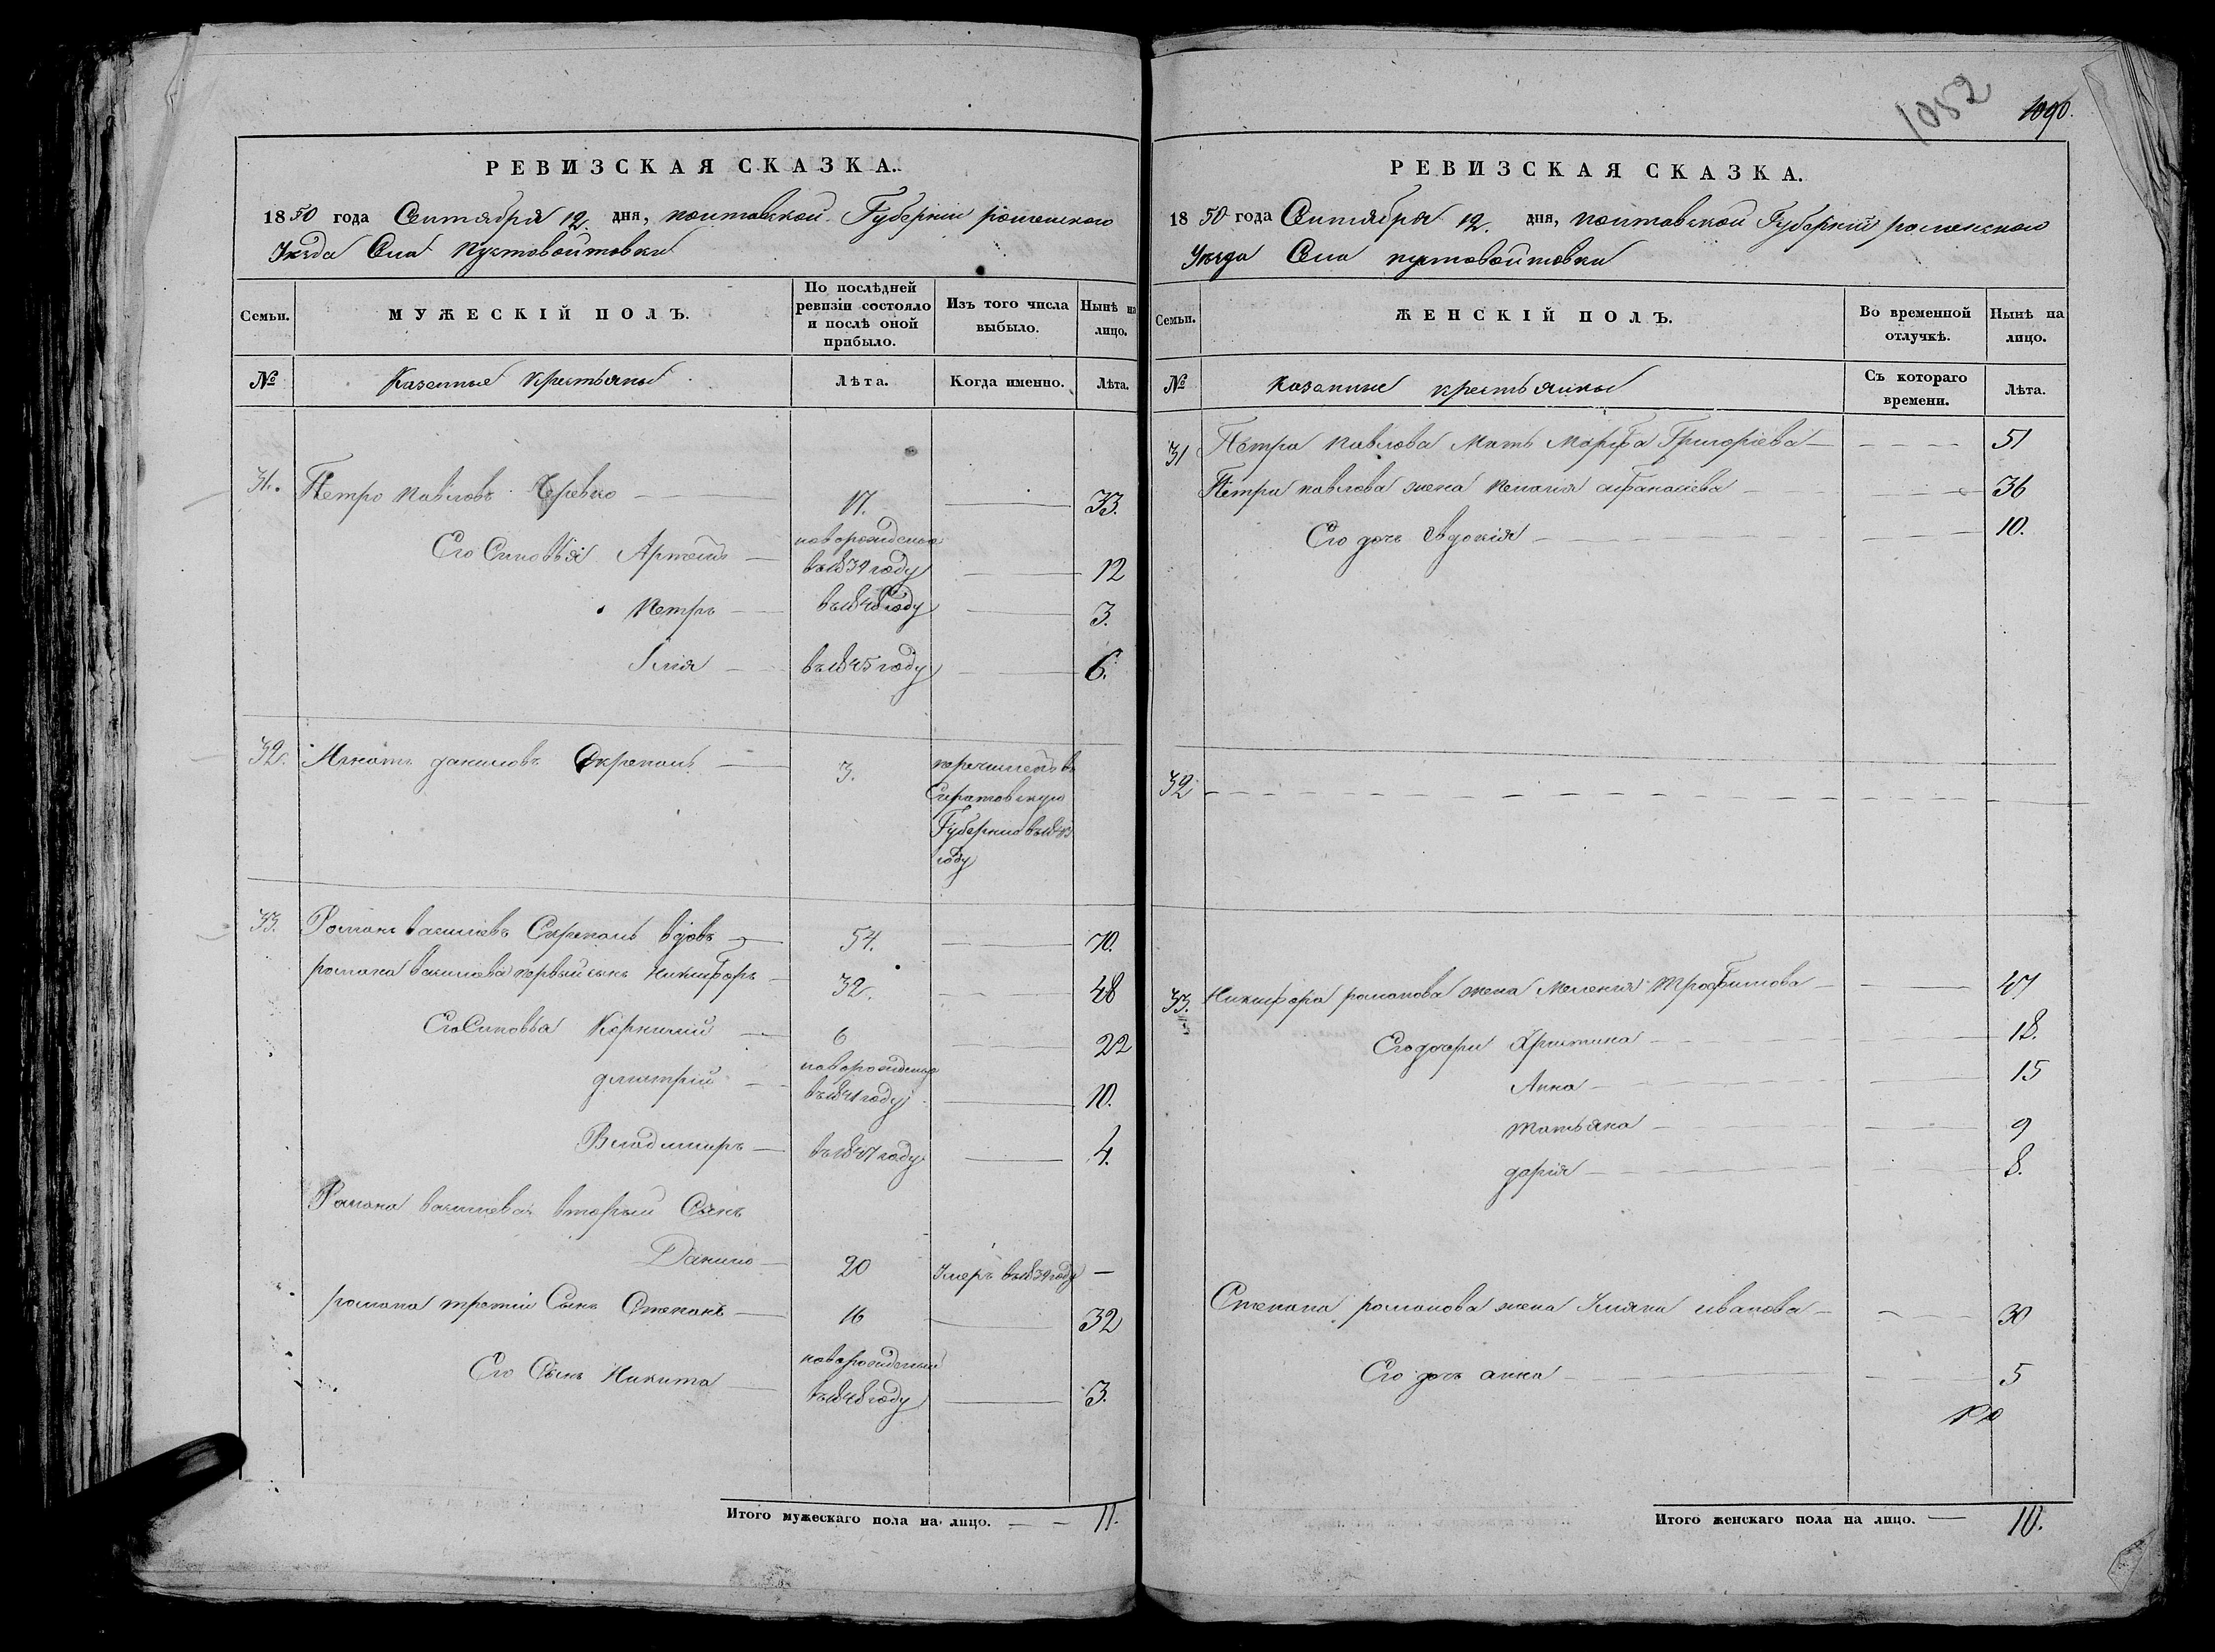 РЕВИЗСКАЯ СКАЗКА.
1850 года Сентября 12 дня, полтавской Губерніи роменского
Уезда Села пустовойтовки
Семьи. МУЖЕСКІЙ ПОЛЪ. По послѣдней ревизіи состояло и послѣ оной прибыло. Изъ того числа выбыло. Нынѣ на лицо.
№ Казенные крестьяны Лѣта. Когда именно. Лѣта.
31. Петро павловъ Черевко 17. 33.
новорожденой
Его Синовья Артемъ въ1839 году 12
Петръ въ1848году 3.
Илiя въ1845 году 6.
32. Игнатъ даниловъ Скрепаль 3. перечисленъ въ
Саратовскую
Губернию въ1843
году
33. Романъ васильевъ Скрепаль вдовъ 54. 70.
романа васильева первый сынъ Никифоръ 32. 48
Его Синовья Корнилий 6 22
новорожденой
дмитрий въ1841 году 10.
Владимиръ въ1847 году 4.
Романа васильева вторый Сынъ
Данило 20 Умеръ въ1839году —
романа третий Сынъ Степанъ 16 32
новорожденый
Его Сынъ Никита въ1848 году 3.
Итого мужескаго пола на лицо. — — 11.
1052
1090.
РЕВИЗСКАЯ СКАЗКА.
1850 года Сентября 12. дня, полтавской Губерній роменского
Уезда Села пустовойтовки
Семьи. ЖЕНСКІЙ ПОЛЪ. Во временной отлучкѣ. Нынѣ на лицо.
№ казенные крестьянки Съ котораго времени. Лѣта.
31 Петра павлова Мать Марфа Григорiева 51
Петра павлова жена пелагия афанасiева 36
Его дочь Евдокiя 10.
32
33. Никифора романова жена Меланiя Трофимова 47
Его дочери Христина 18.
Анна 15
татьяна 9
дарiя 8.
Степана романова жена Улияна иванова 30
Его дочь анна 5
Итого женскаго пола на лицо. — 10.